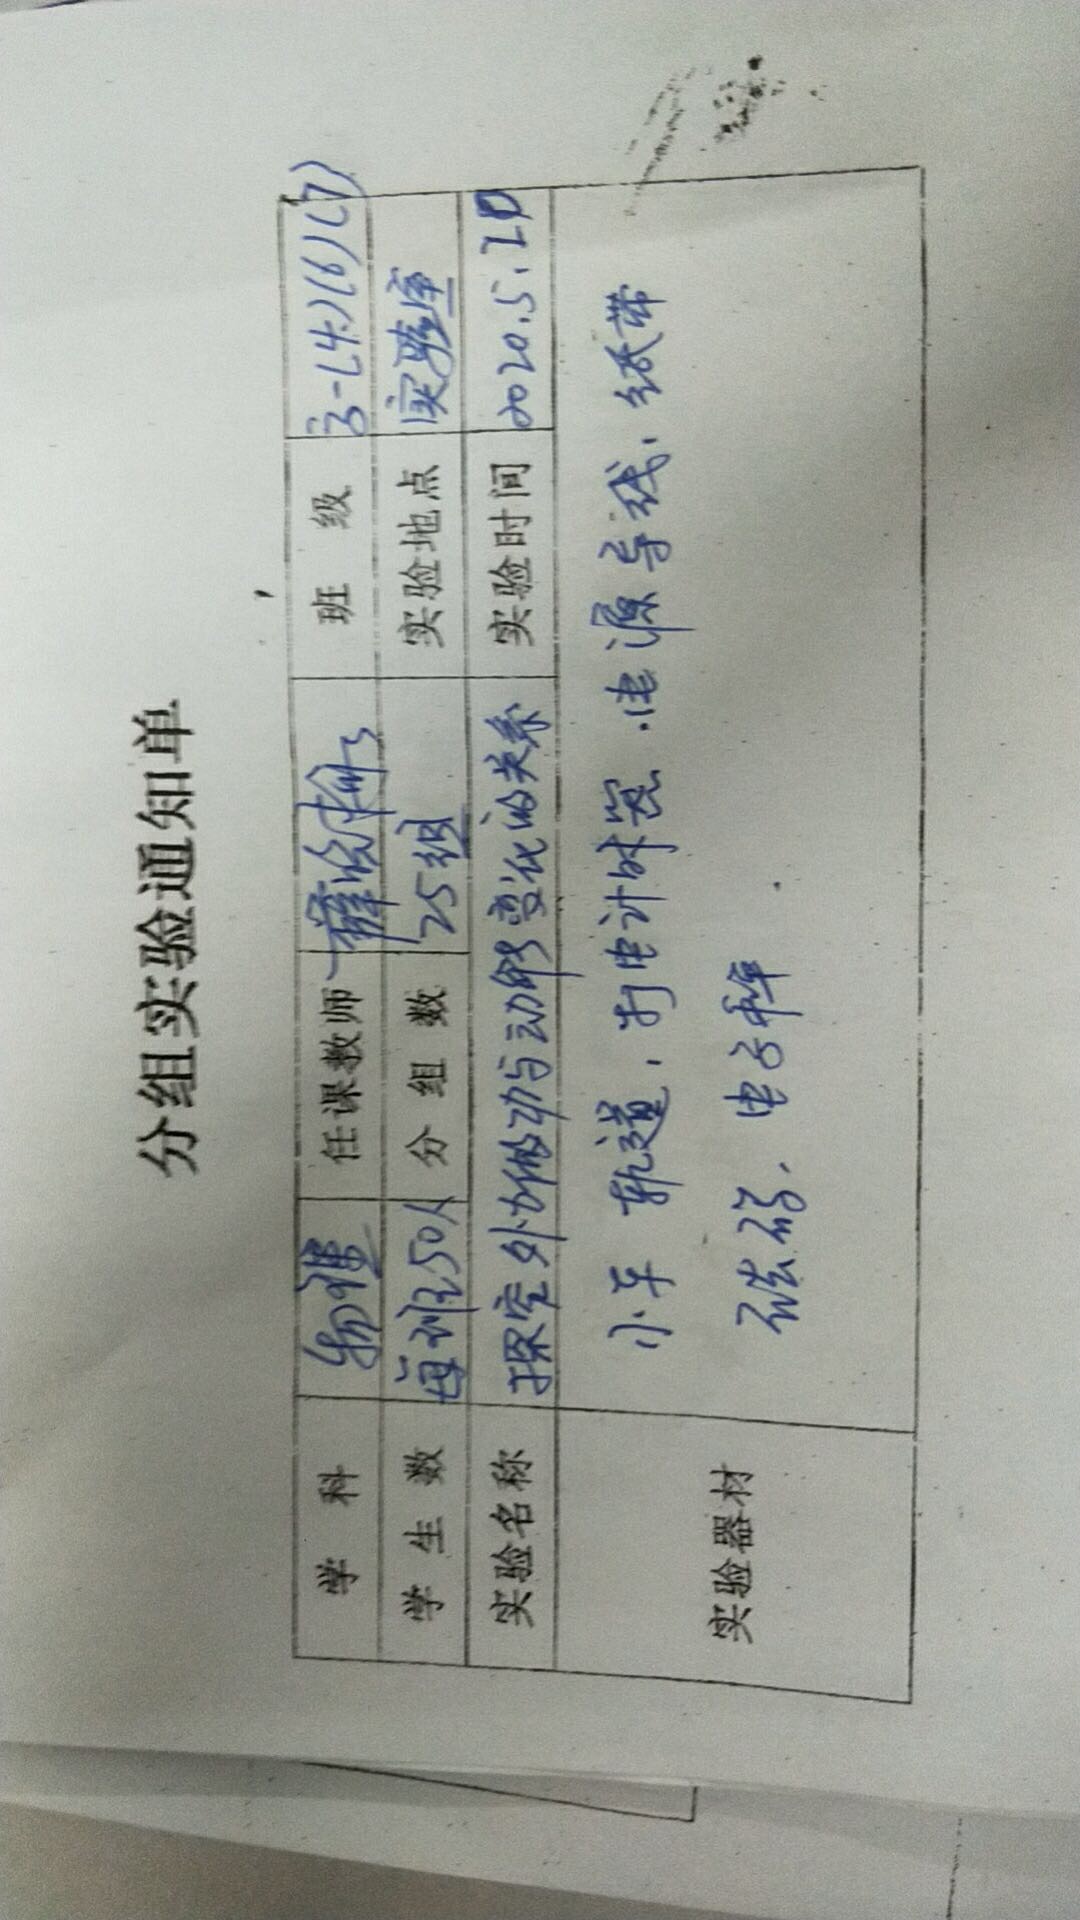 分组实验通知单
学 科 物理 任课教师 班 级 高一(4)(6)(7)
学生数 每班50人 分组数 25组 实验地点 实验室
实验名称 探究外力做功与动能变化的关系 实验时间 2020.5.20
实验器材 小车 轨道、打电计时器、电源 导线、纸带
砝码、电子秤